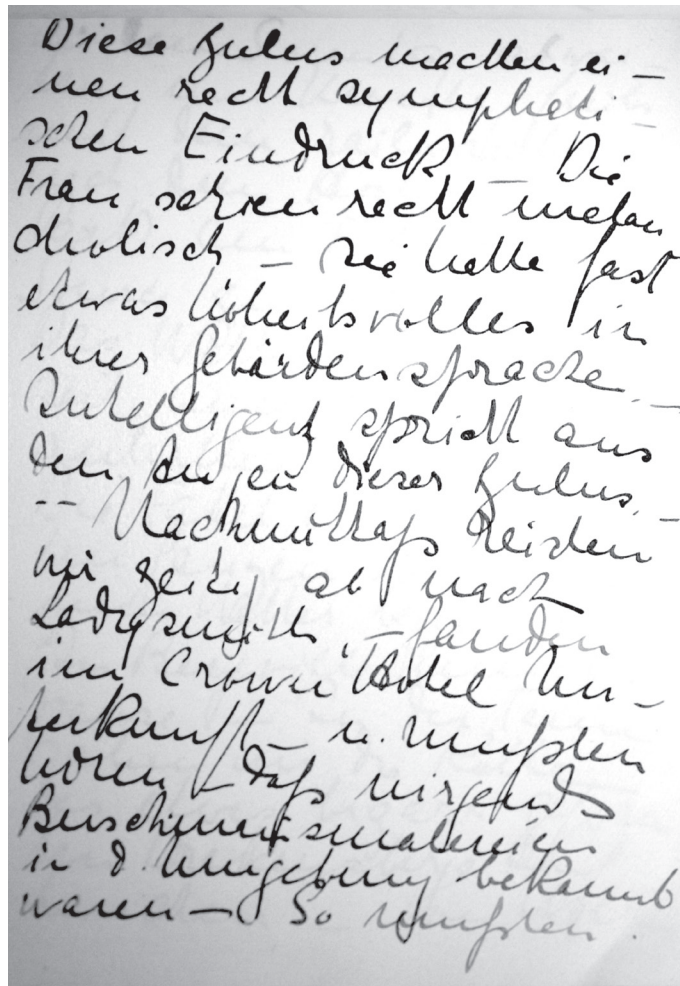 Diese Zulus machten ei-
nen recht sympheti-
schen Eindruck – Die
Frau schien recht melan
cholisch – sie hatte fast
etwas hoheitsvolles in
ihrer Gebärdensprache. –
Intelligenz spricht aus
den Augen dieser Zulus. –
-- Nachmittags reisten
wir zeitig ab nach
Ladysmith – fanden
im Crown Hotel Un-
terkunft – u. mußten
hören – daß nirgends
Buschmannsmalereien
in d. Umgebung bekannt
waren – So mußten